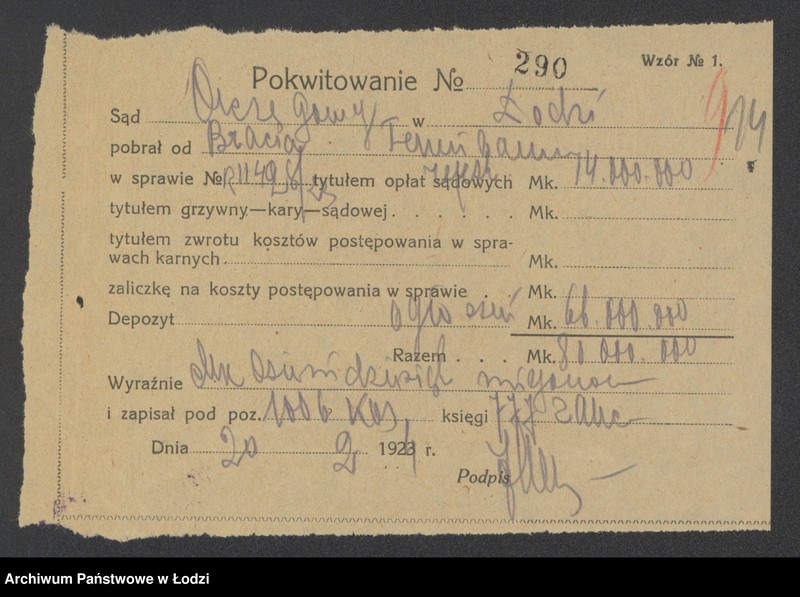 Wzór № 1.
Pokwitowanie № 290
Sąd Okręgowy w Łodzi
14
pobrał od Bracia
w sprawie № tytułem opłat sądowych Mk. 14.000.000
tytułem grzywny—kary—sądowej . . . . . . Mk.
tytułem zwrotu kosztów postępowania w spra-
wach karnych Mk.
zaliczkę na koszty postępowania w sprawie . Mk.
Depozyt ogłoszeń Mk. 66.000.000
Razem . . . Mk. 80.000.000
Wyraźnie Mk osiemdziesiąt milionów
i zapisał pod poz. 1006 księgi
Dnia 20 2 192 r.
Podpis
Archiwum Państwowe w Łodzi